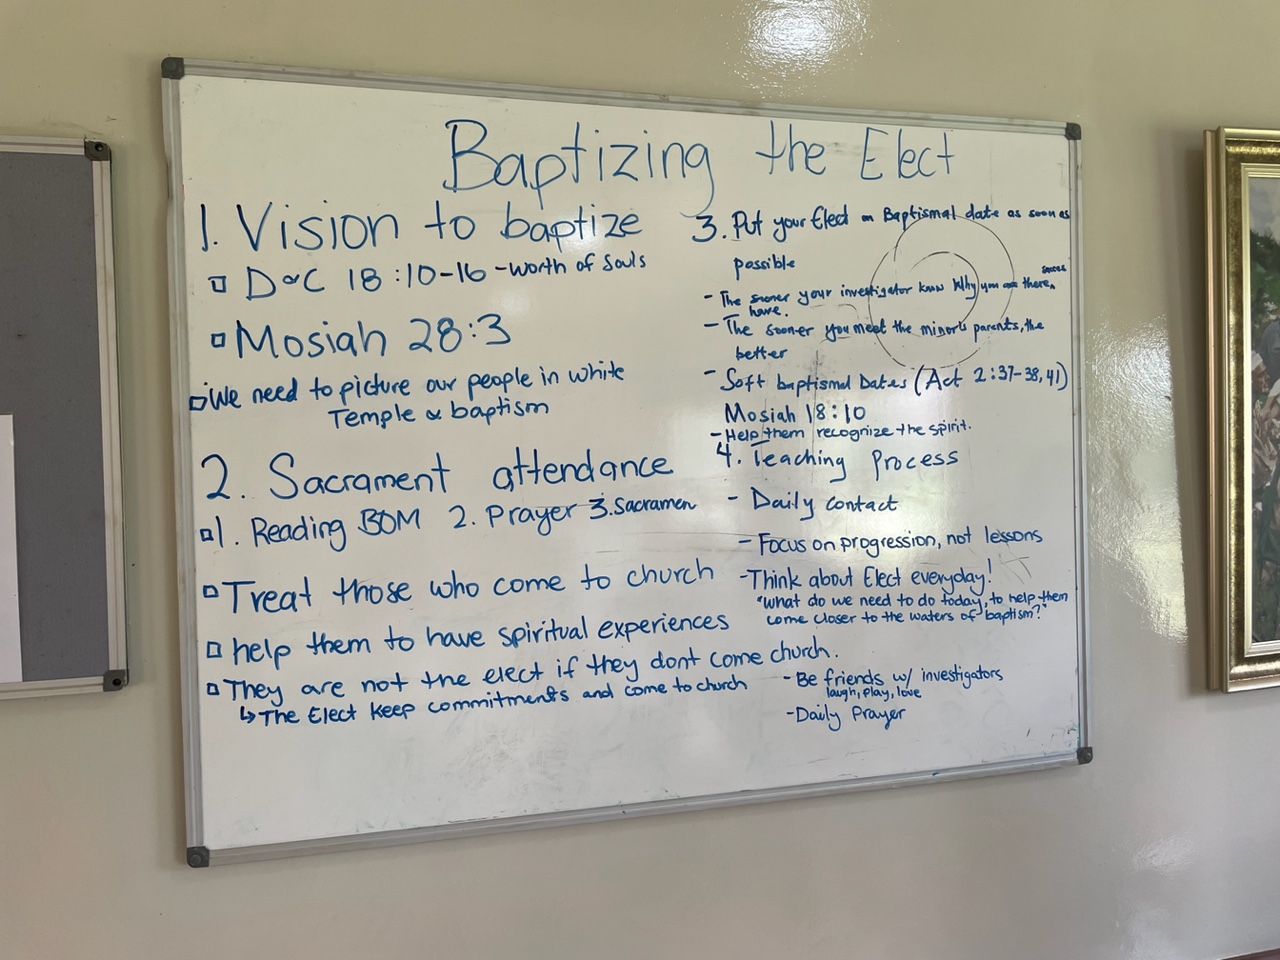 Baptizing the Elect
1. Vision to baptize
D&C 18:10-16 - worth of Souls
Mosiah 28:3
We need to picture our people in white
Temple & baptism
2. Sacrament attendance
1. Reading BOM 2. Prayer 3. Sacramen
Treat those who come to church
help them to have spiritual experiences
They are not the elect if they dont come church.
↳ The Elect keep commitments and come to church
3. Put your Elect on Baptismal date as soon as
possible
- The sooner your investigator know Why you are there,
have.
- The sooner you meet the minor's parents, the
better
- Soft baptismal Dates (Act 2:37-38, 41)
Mosiah 18:10
- Help them recognize the spirit.
4. Teaching Process
- Daily contact
- Focus on progression, not lessons
- Think about Elect everyday!
"what do we need to do today, to help them
come closer to the waters of baptism?"
- Be friends w/ investigators
laugh, play, love
- Daily Prayer